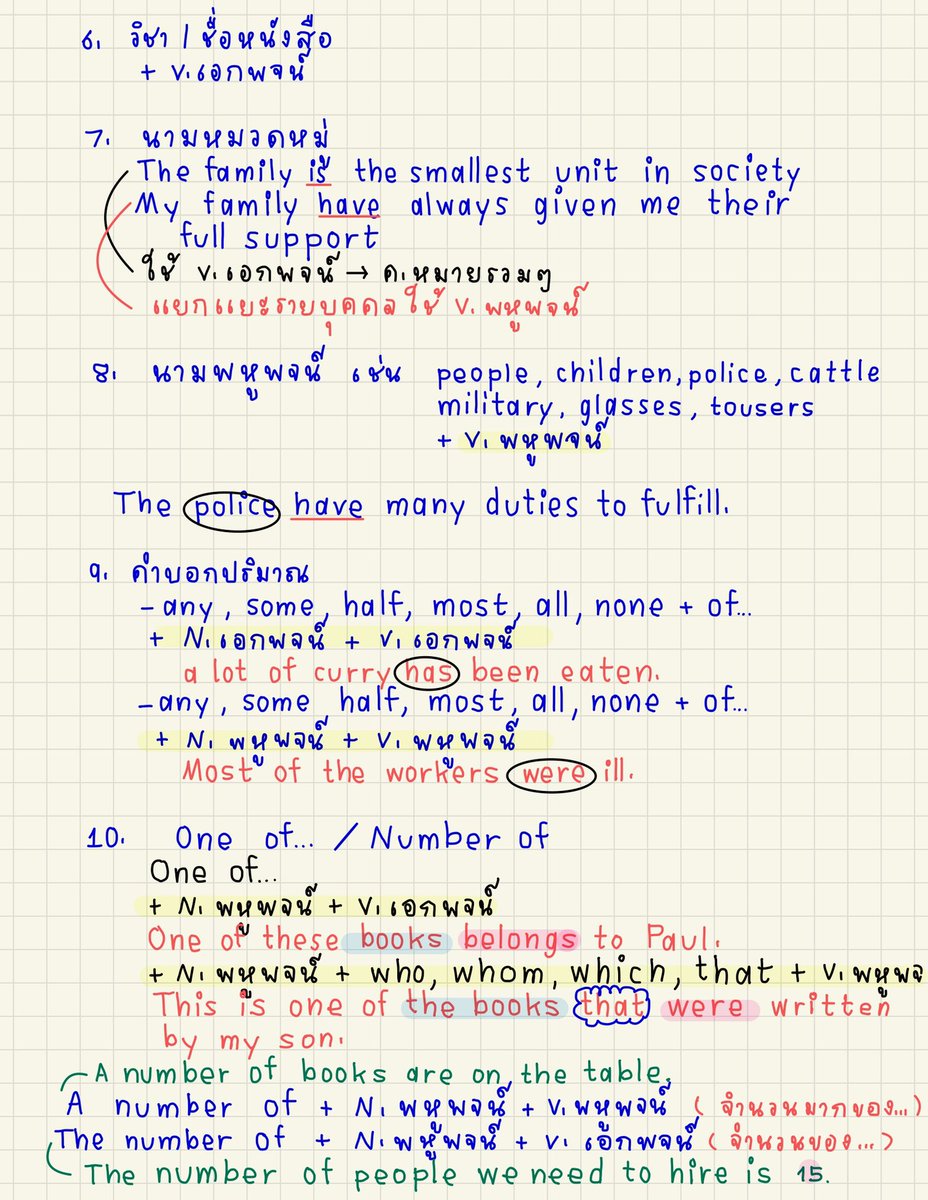 6. วิชา / ชื่อหนังสือ
+ V. เอกพจน์
7. นามหมวดหมู่
The family is the smallest unit in society
My family have always given me their
full support
ใช้ V. เอกพจน์ → ค. หมายรวมๆ
แยกแยะรายบุคคลใช้ V. พหูพจน์
8. นามพหูพจน์ เช่น people, children, police, cattle
military, glasses, tousers
+ V. พหูพจน์
The police have many duties to fulfill.
9. คำบอกปริมาณ
- any, some, half, most, all, none + of...
+ N. เอกพจน์ + V. เอกพจน์
a lot of curry has been eaten.
- any, some half, most, all, none + of...
+ N. พหูพจน์ + V. พหูพจน์
Most of the workers were ill.
10. One of... / Number of
One of...
+ N. พหูพจน์ + V. เอกพจน์
One of these books belongs to Paul.
+ N. พหูพจน์ + who, whom, which, that + V. พหูพจ
This is one of the books that were written
by my son.
A number of books are on the table.
A number of + N. พหูพจน์ + V. พหูพจน์ (จำนวนมากของ...)
The number of + N. พหูพจน์ + V. เอกพจน์ (จำนวนของ...)
The number of people we need to hire is 15.